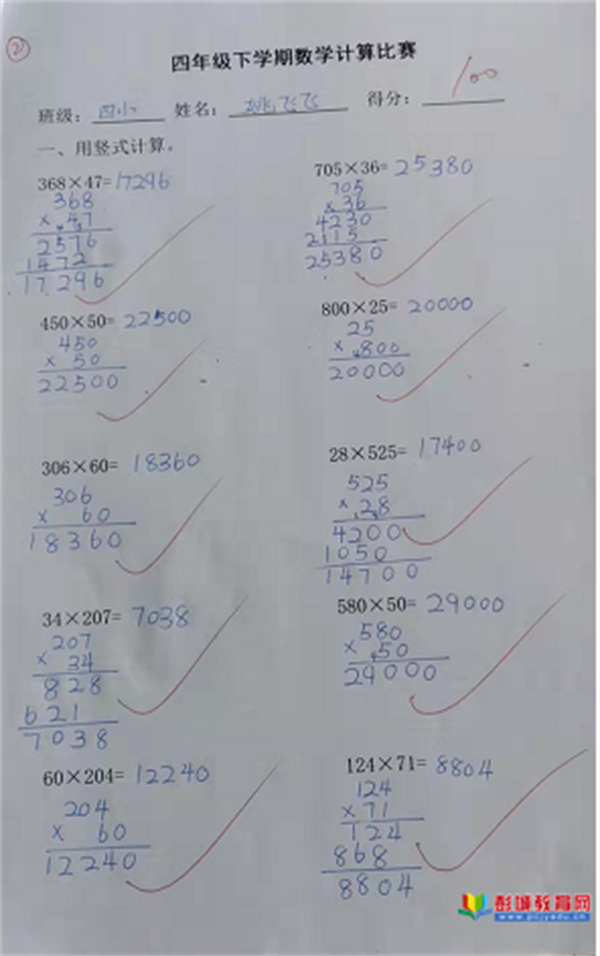 2
四年级下学期数学计算比赛
班级: 四小 姓名: 姚飞飞 得分: 100
一、用竖式计算。
368×47=17296
368
× 47
2576
1472
17296
705×36=25380
705
×36
4230
2115
25380
450×50=22500
450
× 50
22500
800×25=20000
25
×800
20000
306×60=18360
306
× 60
18360
28×525=17400
525
×28
4200
1050
14700
34×207=7038
207
× 34
828
621
7038
580×50=29000
580
×50
29000
60×204=12240
204
× 60
12240
124×71=8804
124
×71
124
868
8804
彭城教育网
www.pcjyedu.cn